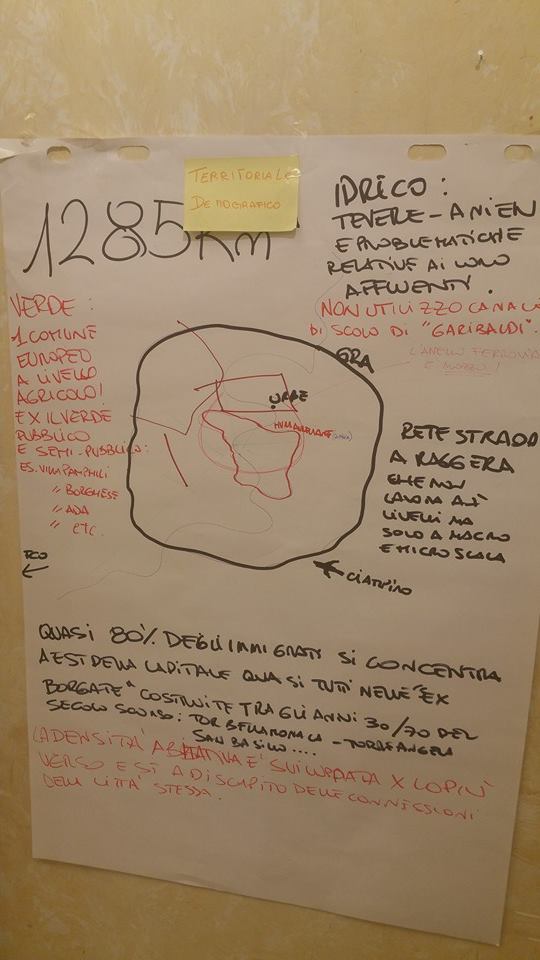 TERRITORIALE
DEMOGRAFICO
1285 Km
IDRICO:
TEVERE - ANIEN
E PROBLEMATICHE
RELATIVE AI LORO
AFFLUENTI.
NON UTILIZZO CANALI
DI SCOLO DI "GARIBALDI".
L'ANELLO FERROVIA
E MOZZO!
VERDE:
1 COMUNE
EUROPEO
A LIVELLO
AGRICOLO!
E X IL VERDE
PUBBLICO
E SEMI-PUBBLICO:
ES. VILLA PAMPHILI
" BORGHESE
" ADA
" ETC.
GRA
URBE
RETE STRADA
A RAGGERA
CHE NON
LAVORA A +
LIVELLI MA
SOLO A MACRO
E MICRO SCALA
FCO
CIAMPINO
QUASI 80% DEGLI IMMIGRATI SI CONCENTRA
A EST DELLA CAPITALE QUASI TUTTI NELLE "EX
BORGATE" COSTRUITE TRA GLI ANNI 30/70 DEL
SECOLO SCORSO: TOR BELLAMONACA - TORRE ANGELA
SAN BASILIO....
LA DENSITÀ ABITATIVA E' SVILUPPATA X LO PIÙ
VERSO EST A DISCAPITO DELLE CONNESSIONI
DELLA CITTÀ STESSA.